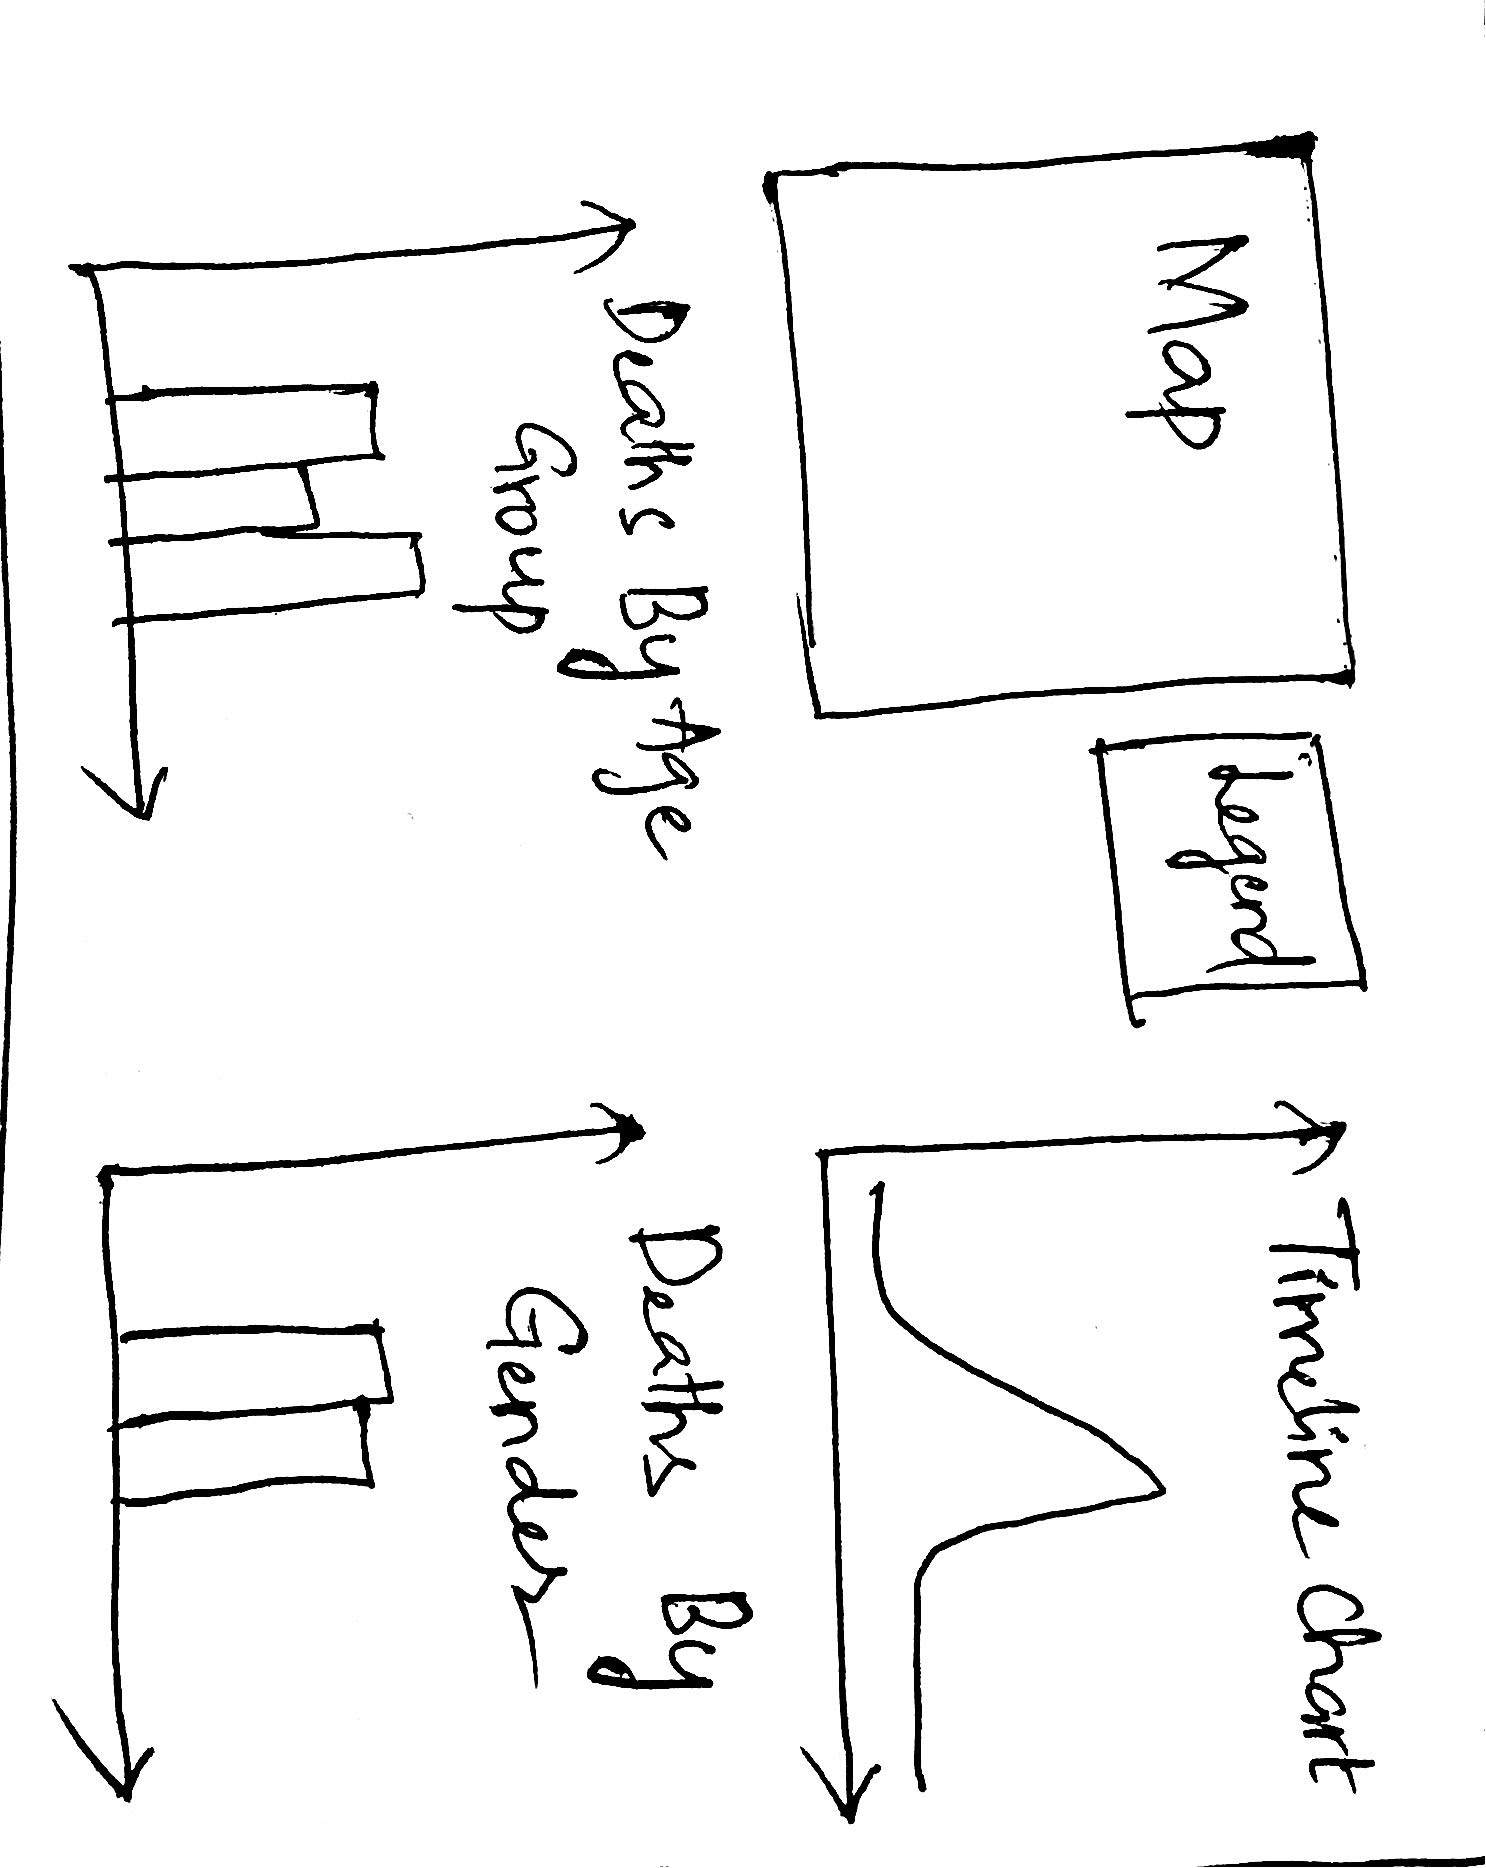 Map
Legend
Timeline Chart
Deaths By Age
Group
Deaths By
Gender